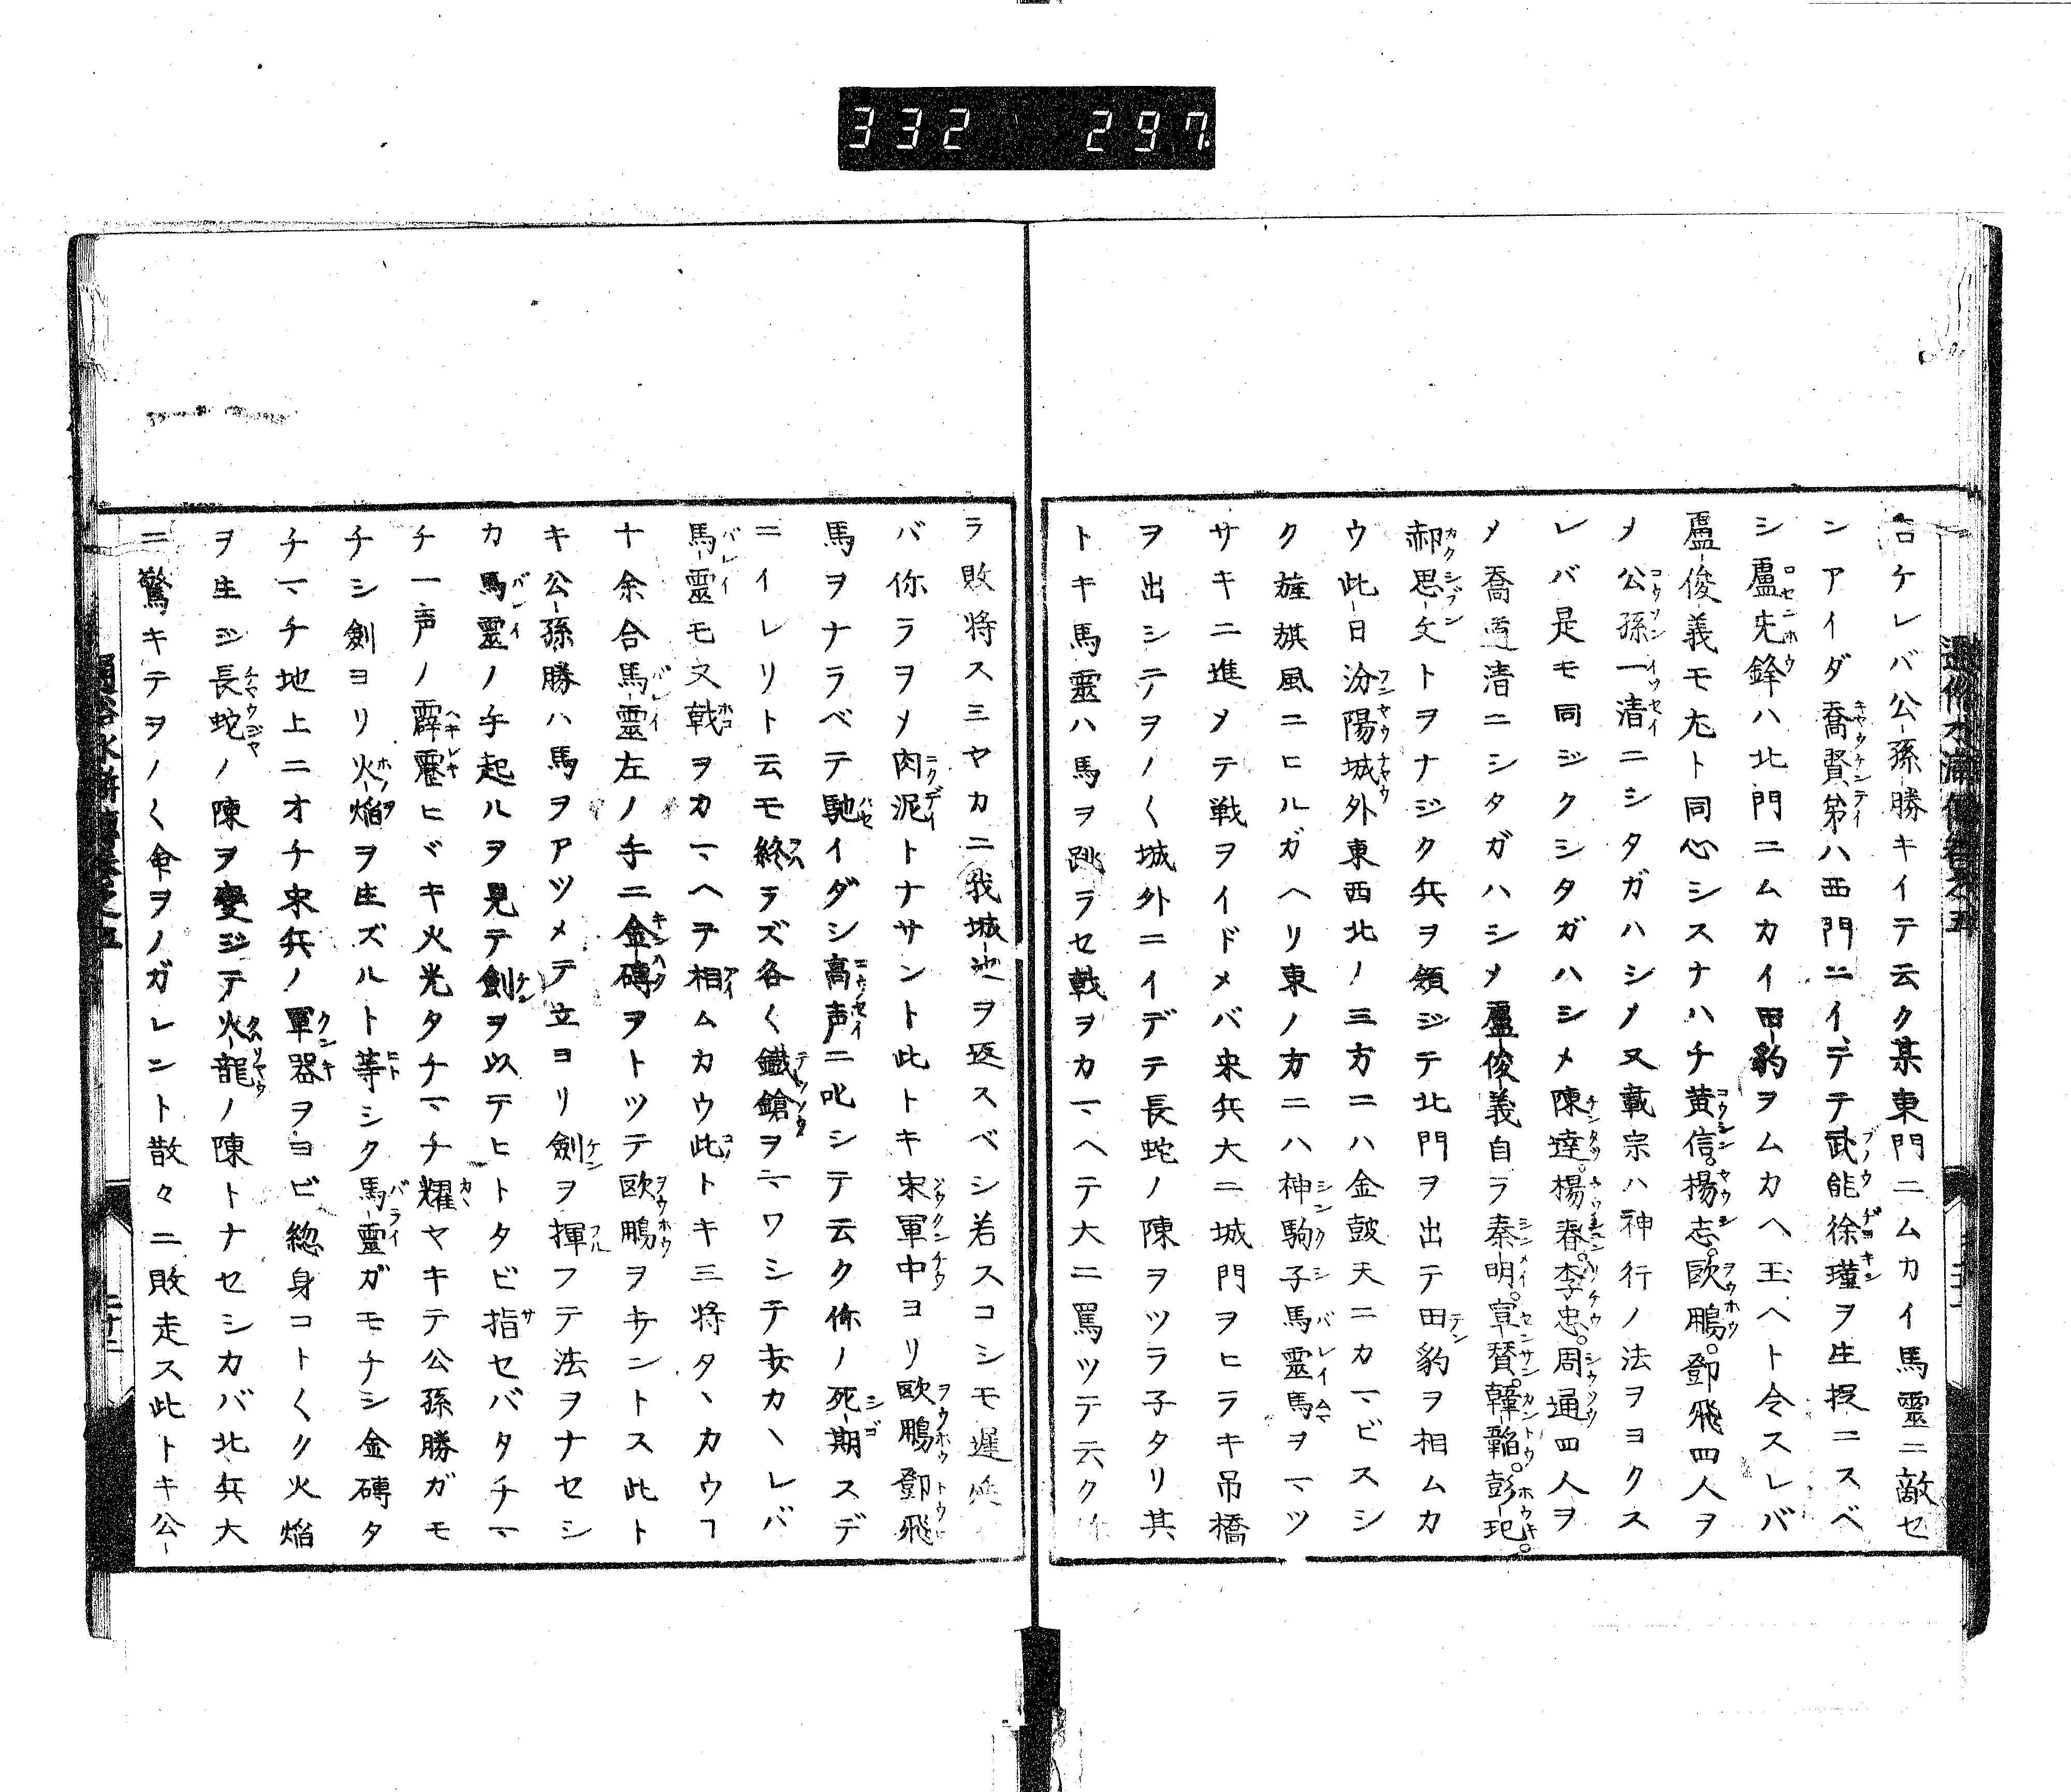 332 297
ロケレバ公孫勝キイテ云ク某東門ニムカイ馬靈ニ敵セ
ンアイダ喬賢第ハ西門ニイデテ武能徐瑾ヲ生捉ニスベ
シ盧先鋒ハ北門ニムカイ田豹ヲムカヘ玉ヘト令スレバ
盧俊義モ尤ト同心シスナハチ黄信。楊志。歐鵬。鄧飛四人ヲ
メ公孫一清ニシタガハシメ又載宗ハ神行ノ法ヲヨクス
レバ是モ同ジクシタガハシメ陳達。楊春。李忠。周通四人ヲ
メ喬道清ニシタガハシメ盧俊義自ラ秦明。宣賛。韓韜。彭玘。
郝思文トヲナジク兵ヲ領ジテ北門ヲ出テ田豹ヲ相ムカ
ウ此日汾陽城外東西北ノ三方ニハ金皷天ニカマビスシ
ク旌旗風ニヒルガヘリ東ノ方ニハ神駒子馬靈馬ヲマツ
サキニ進メテ戦ヲイドメバ宋兵大ニ城門ヲヒラキ吊橋
ヲ出シテヲノ〱城外ニイデテ長蛇ノ陳ヲツラ子タリ其
トキ馬靈ハ馬ヲ跳ラセ戟ヲカマヘテ大ニ罵ツテ云ク
ラ敗将スミヤカニ我城池ヲ返スベシ若スコシモ遲
バ你ラヲメ肉泥トナサント此トキ宋軍中ヨリ歐鵬鄧飛
馬ヲナラベテ馳イダシ高声ニ叱シテ云ク你ノ死期スデ
ニイレリト云モ終ラズ各〱鐵鎗ヲマワシテ支カヽレバ
馬靈モ又戟ヲカマヘヲ相ムカウ此トキ三将タヽカウヿ
十余合馬靈左ノ手ニ金磚ヲトツテ歐鵬ヲサントス此ト
キ公孫勝ハ馬ヲアツメテ立ヨリ劍ヲ揮フテ法ヲナセシ
カ馬靈ノ手起ルヲ見テ劍ヲ以テヒトタビ指セバタチマ
チ一声ノ霹靂ヒヾキ火光タチマチ耀ヤキテ公孫勝ガモ
チシ劍ヨリ火焔ヲ生ズルト等シク馬靈ガモチシ金磚タ
チマチ地上ニオチ宋兵ノ軍器ヲヨビ総身コト〱ク火焔
ヲ生ジ長蛇ノ陳ヲ變ジテ火龍ノ陳トナセシカバ北兵大
ニ驚キテヲノ〱命ヲノガレント散々ニ敗走ス此トキ公